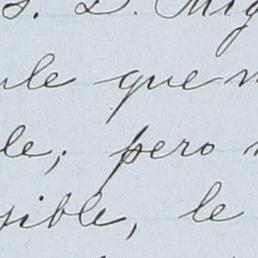 S. D. Mig
ule que n
le; pero
sible, le